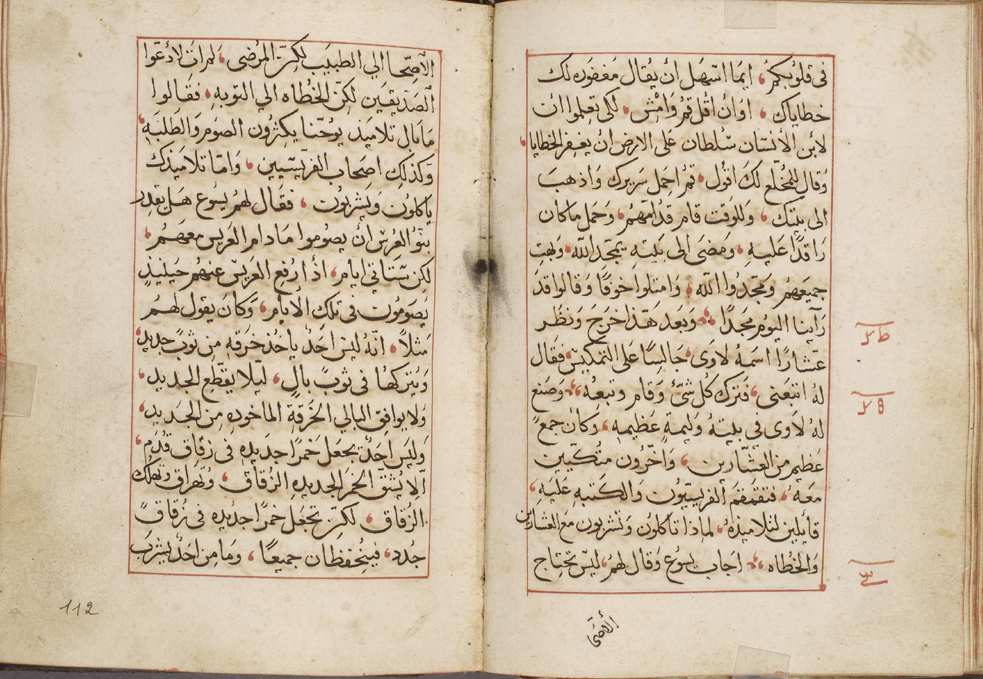 في قلوبكم، ايما اسهل ان يقال مغفوره لك
خطاياك، او ان اقل قم وامش، لكي تعلموا ان
لابن الانسان سلطان على الارض ان يغفر الخطايا،
وقال للمخلع لك اقول، قم احمل سريرك واذهب
الى بيتك، وللوقت قام قدامهم، وحمل ما كان
راقدًا عليه، ومضى الى بيته يمجد الله، وبهت
جميعهم ومجدوا الله، وامتلوا خوفًا وقالوا قد
راينا اليوم مجدًا، وبعد هذا خرج ونظر
عشارًا اسمه لاوى، جالسًا على التمكيس، فقال
له اتبعني، فترك كل شئ، وقام وتبعه، وصنع
له لاوى في بيته وليمة عظيمه، وكان جمع
عظيم من العشارين، واخرون متكيين
معه، فتقمقم الفريسيون والكتبه عليه،
قايلين لتلاميذه، لماذا تاكلون وتشربون مع العشارين
والخطاه، اجاب يسوع وقال لهم، ليس تحتاج
الاصحا
الاصحا الى الطبيب لكن المرضى، لم ات لادعوا
الصديقين لكن الخطاه الي التوبه، فقالوا
ما بال تلاميذ يوحنا يكثرون الصوم والطلبه،
وكذلك اصحاب الفريسيين، واما تلاميذك
ياكلون ويشربون، فقال لهم يسوع هل يقدر
بنو العرس ان يصوموا ما دام العريس معهم،
لكن ستاتي ايام، اذا رفع العريس عنهم حينيذٍ
يصومون في تلك الايام، وكان يقول لهم
مثلاً، انه ليس احد ياخذ خرقه من ثوب جديد
ويتركها في ثوب بالٍ، ليلا يقطع الجديد،
ولا يوافق البالي الخرقة الماخوذه من الجديد،
وليس احد يجعل خمرًا جديده في زقاق قدم،
الا تنشق الخمر الجديده الزقاق، وتهراق وتهلك
الزقاق، لكن تجعل خمرًا جديده في زقاق
جدد، فينحفظان جميعًا، وما من احد يشرب
112